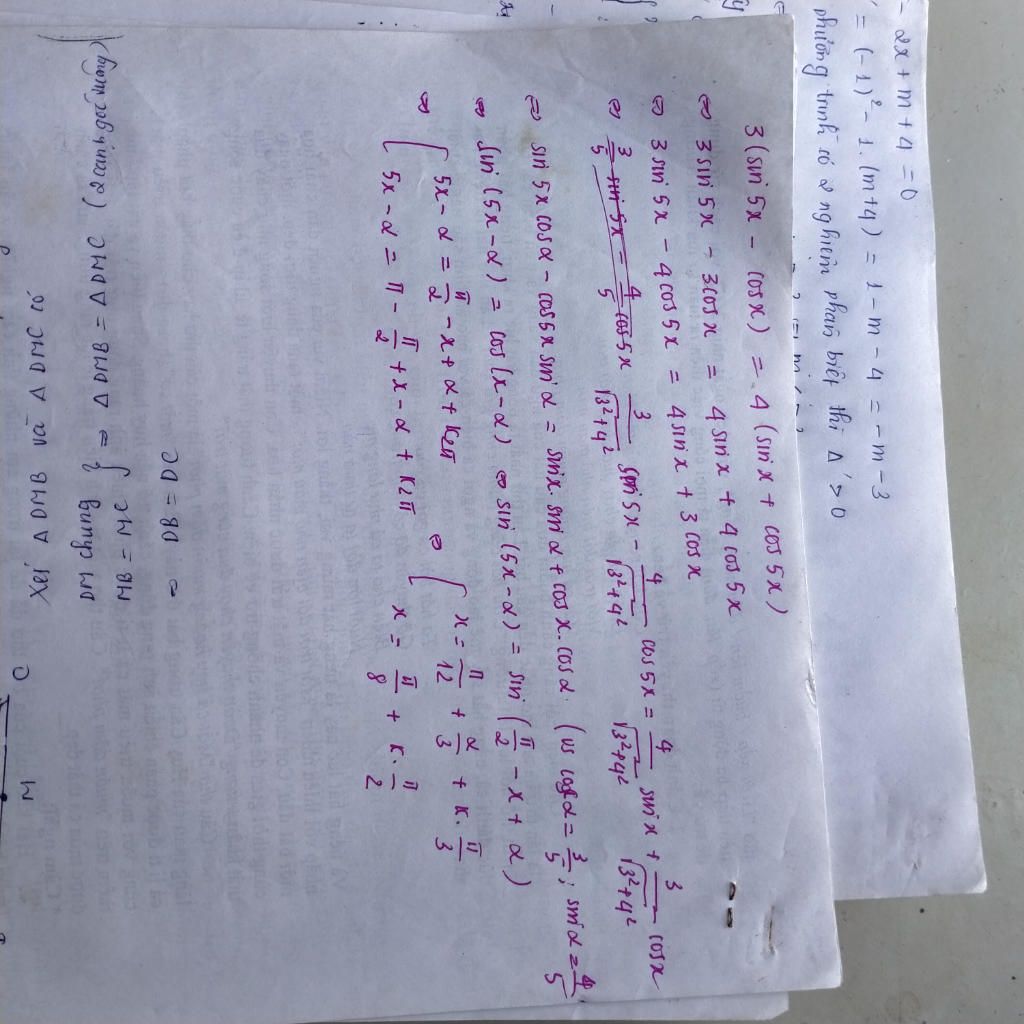 - 2x + m + 4 = 0
' = (-1)² - 1.(m+4) = 1 - m - 4 = -m - 3
phương trình có 2 nghiệm phân biệt thì Δ' > 0
3(sin 5x - cosx) = 4(sinx + cos5x)
⇔ 3sin5x - 3cosx = 4sinx + 4cos5x
⇔ 3sin5x - 4cos5x = 4sinx + 3cosx
⇔ 3/5 sin5x = 4/5 cos5x 3/√(3²+4²) sin5x - 4/√(3²+4²) cos5x = 4/√(3²+4²) sinx + 3/√(3²+4²) cosx
⇔ sin5x cosα - cos5x sinα = sinx.sinα + cosx.cosα (vs cosα = 3/5; sinα = 4/5
⇔ sin(5x-α) = cos(x-α) ⇔ sin(5x-α) = sin(π/2 - x + α)
⇔ [ 5x - α = π/2 - x + α + k2π ⇔ [ x = π/12 + α/3 + k.π/3
5x - α = π - π/2 + x - α + k2π x = π/8 + k.π/2
M
C
DB = DC
MB = MC } ⇒ ΔDMB = ΔDMC (2 cạnh góc vuông)
DM chung
Xét ΔDMB và ΔDMC có